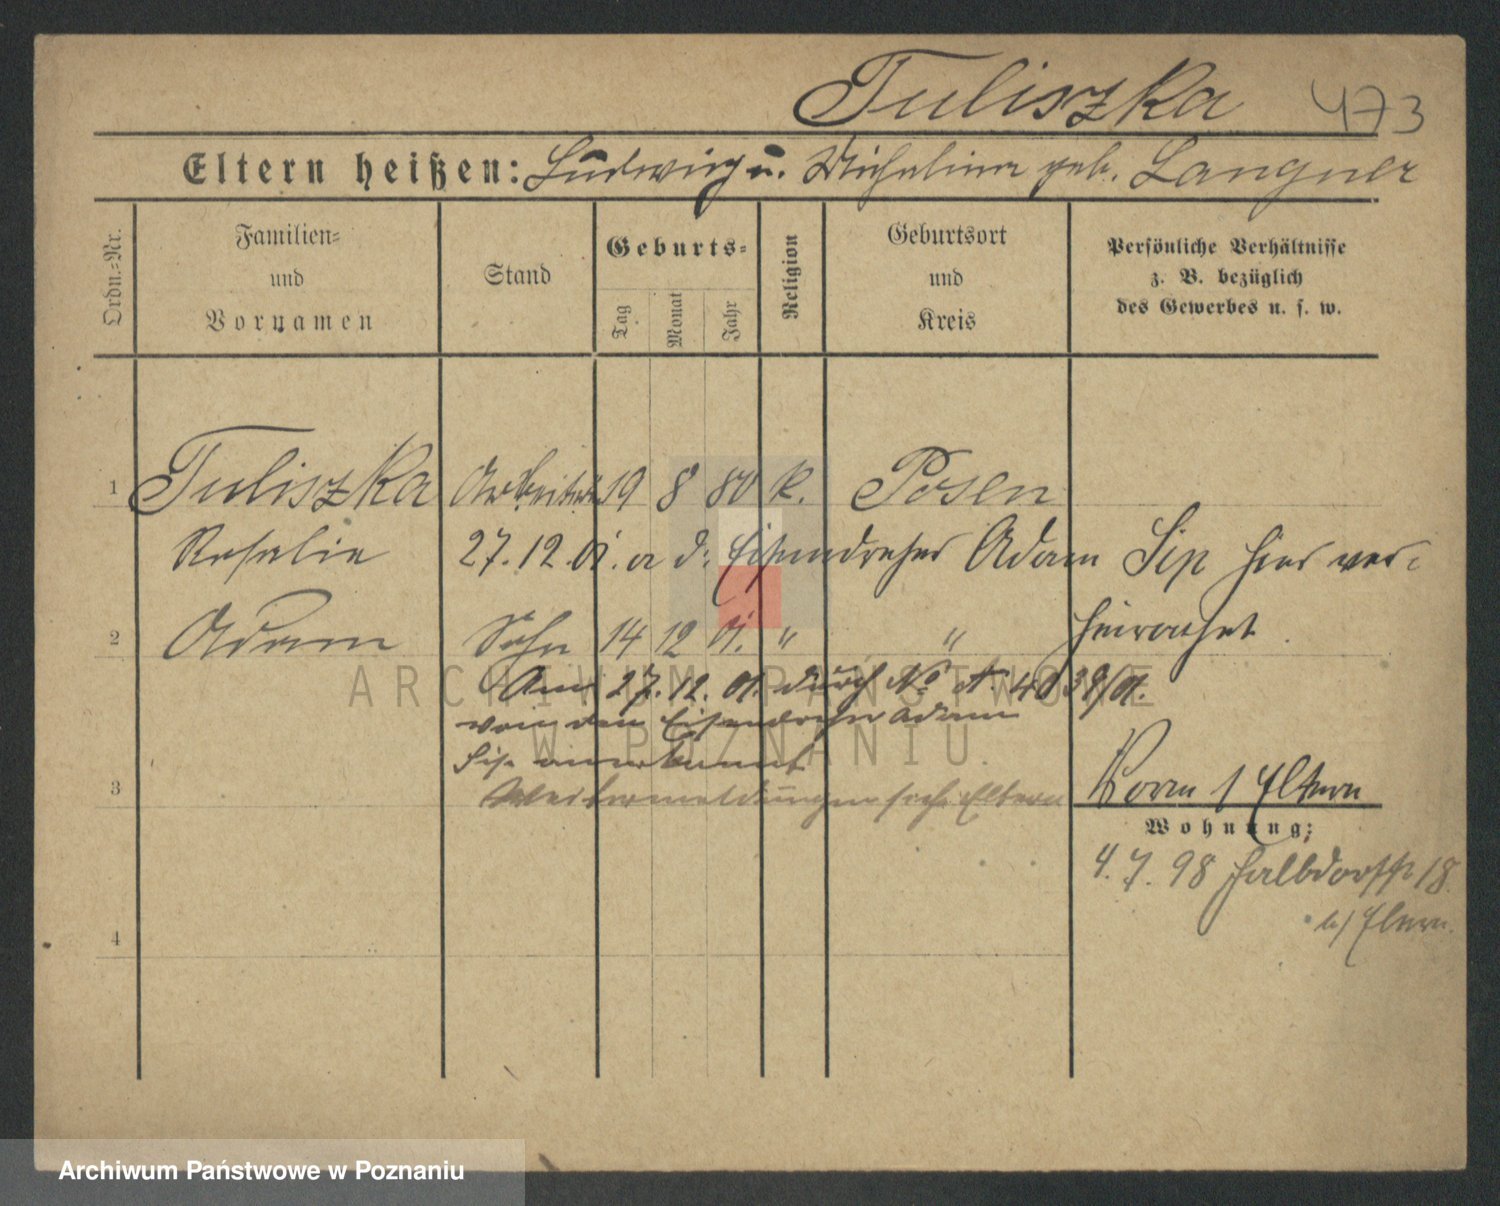 Tuliszka 473
Eltern heißen: Ludwig u. Michalina geb. Langner
Ordn.-Nr.
Familien-
und
Vornamen
Stand
Geburts-
Tag
Monat
Jahr
Religion
Geburtsort
und
Kreis
Persönliche Verhältnisse
z. B. bezüglich
des Gewerbes u. s. w.
1 Tuliszka Arbeiterin 19 8 80 k. Posen
Rosalie 27.12.01. a d: Eisendreher Adam Sip hier ver-
heirathet
2 Adam Sohn 14 12 01. " "
Am 27.12.01. durch No A. 4039/01.
von dem Eisendreher Adam
Sip anerkannt
3 Weitermeldungen sieh Eltern
Worm / Eltern
Wohnung:
4.7.98 Halbdorfstr 18.
b/ Eltern.
4
ARCHIWUM PAŃSTWOWE
W POZNANIU
Archiwum Państwowe w Poznaniu